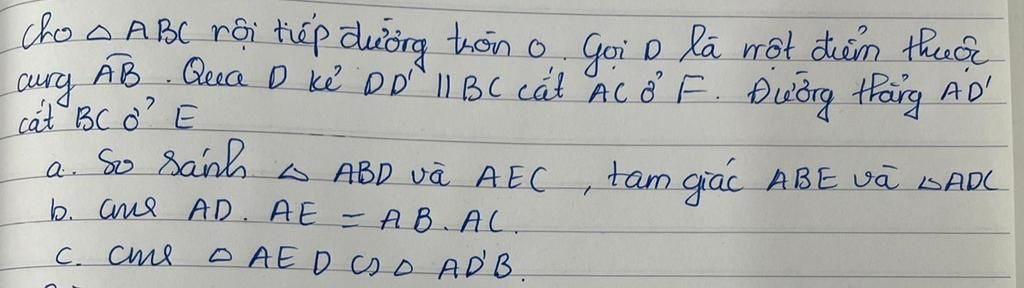 Cho △ ABC nội tiếp đường tròn O. Gọi D là một điểm thuộc
cung AB. Qua D kẻ DD' || BC cắt AC ở F. Đường thẳng AD'
cắt BC ở E
a. So sánh △ ABD và AEC, tam giác ABE và △ADC
b. cmr AD. AE = AB. AC.
c. cmr △ AED ∽ △ AD'B.